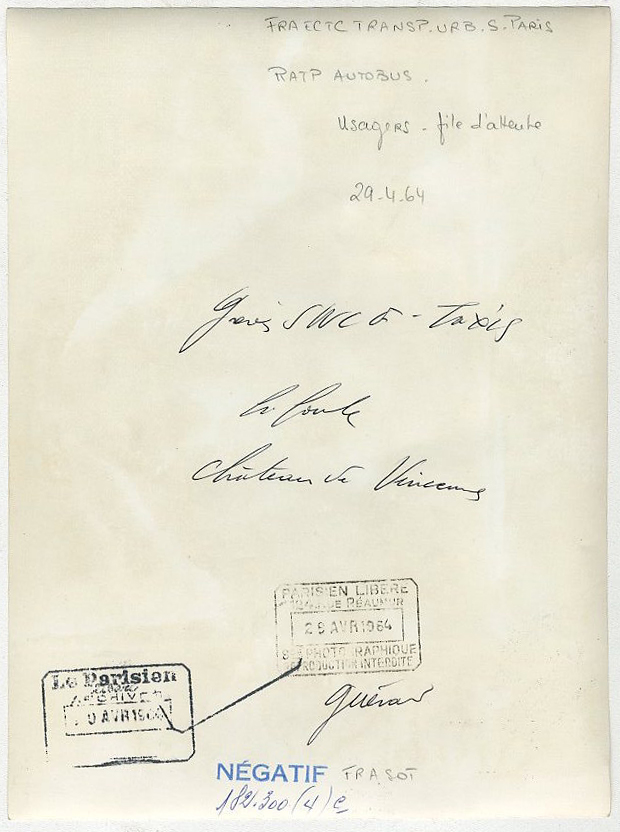 FRA ECTC TRANSP. URB. S. PARIS
RATP AUTOBUS.
Usagers - file d'attente
29-4-64
Grève SNCF - Taxis
la foule
Château de Vincennes
PARISIEN LIBERE
RUE RÉAUMUR
29 AVR 1964
PHOTOGRAPHIQUE
REPRODUCTION INTERDITE
Le Parisien
libéré
ARCHIVES
AVR 1964
Guérard
NÉGATIF FRA.SOT
182.300 (4) C